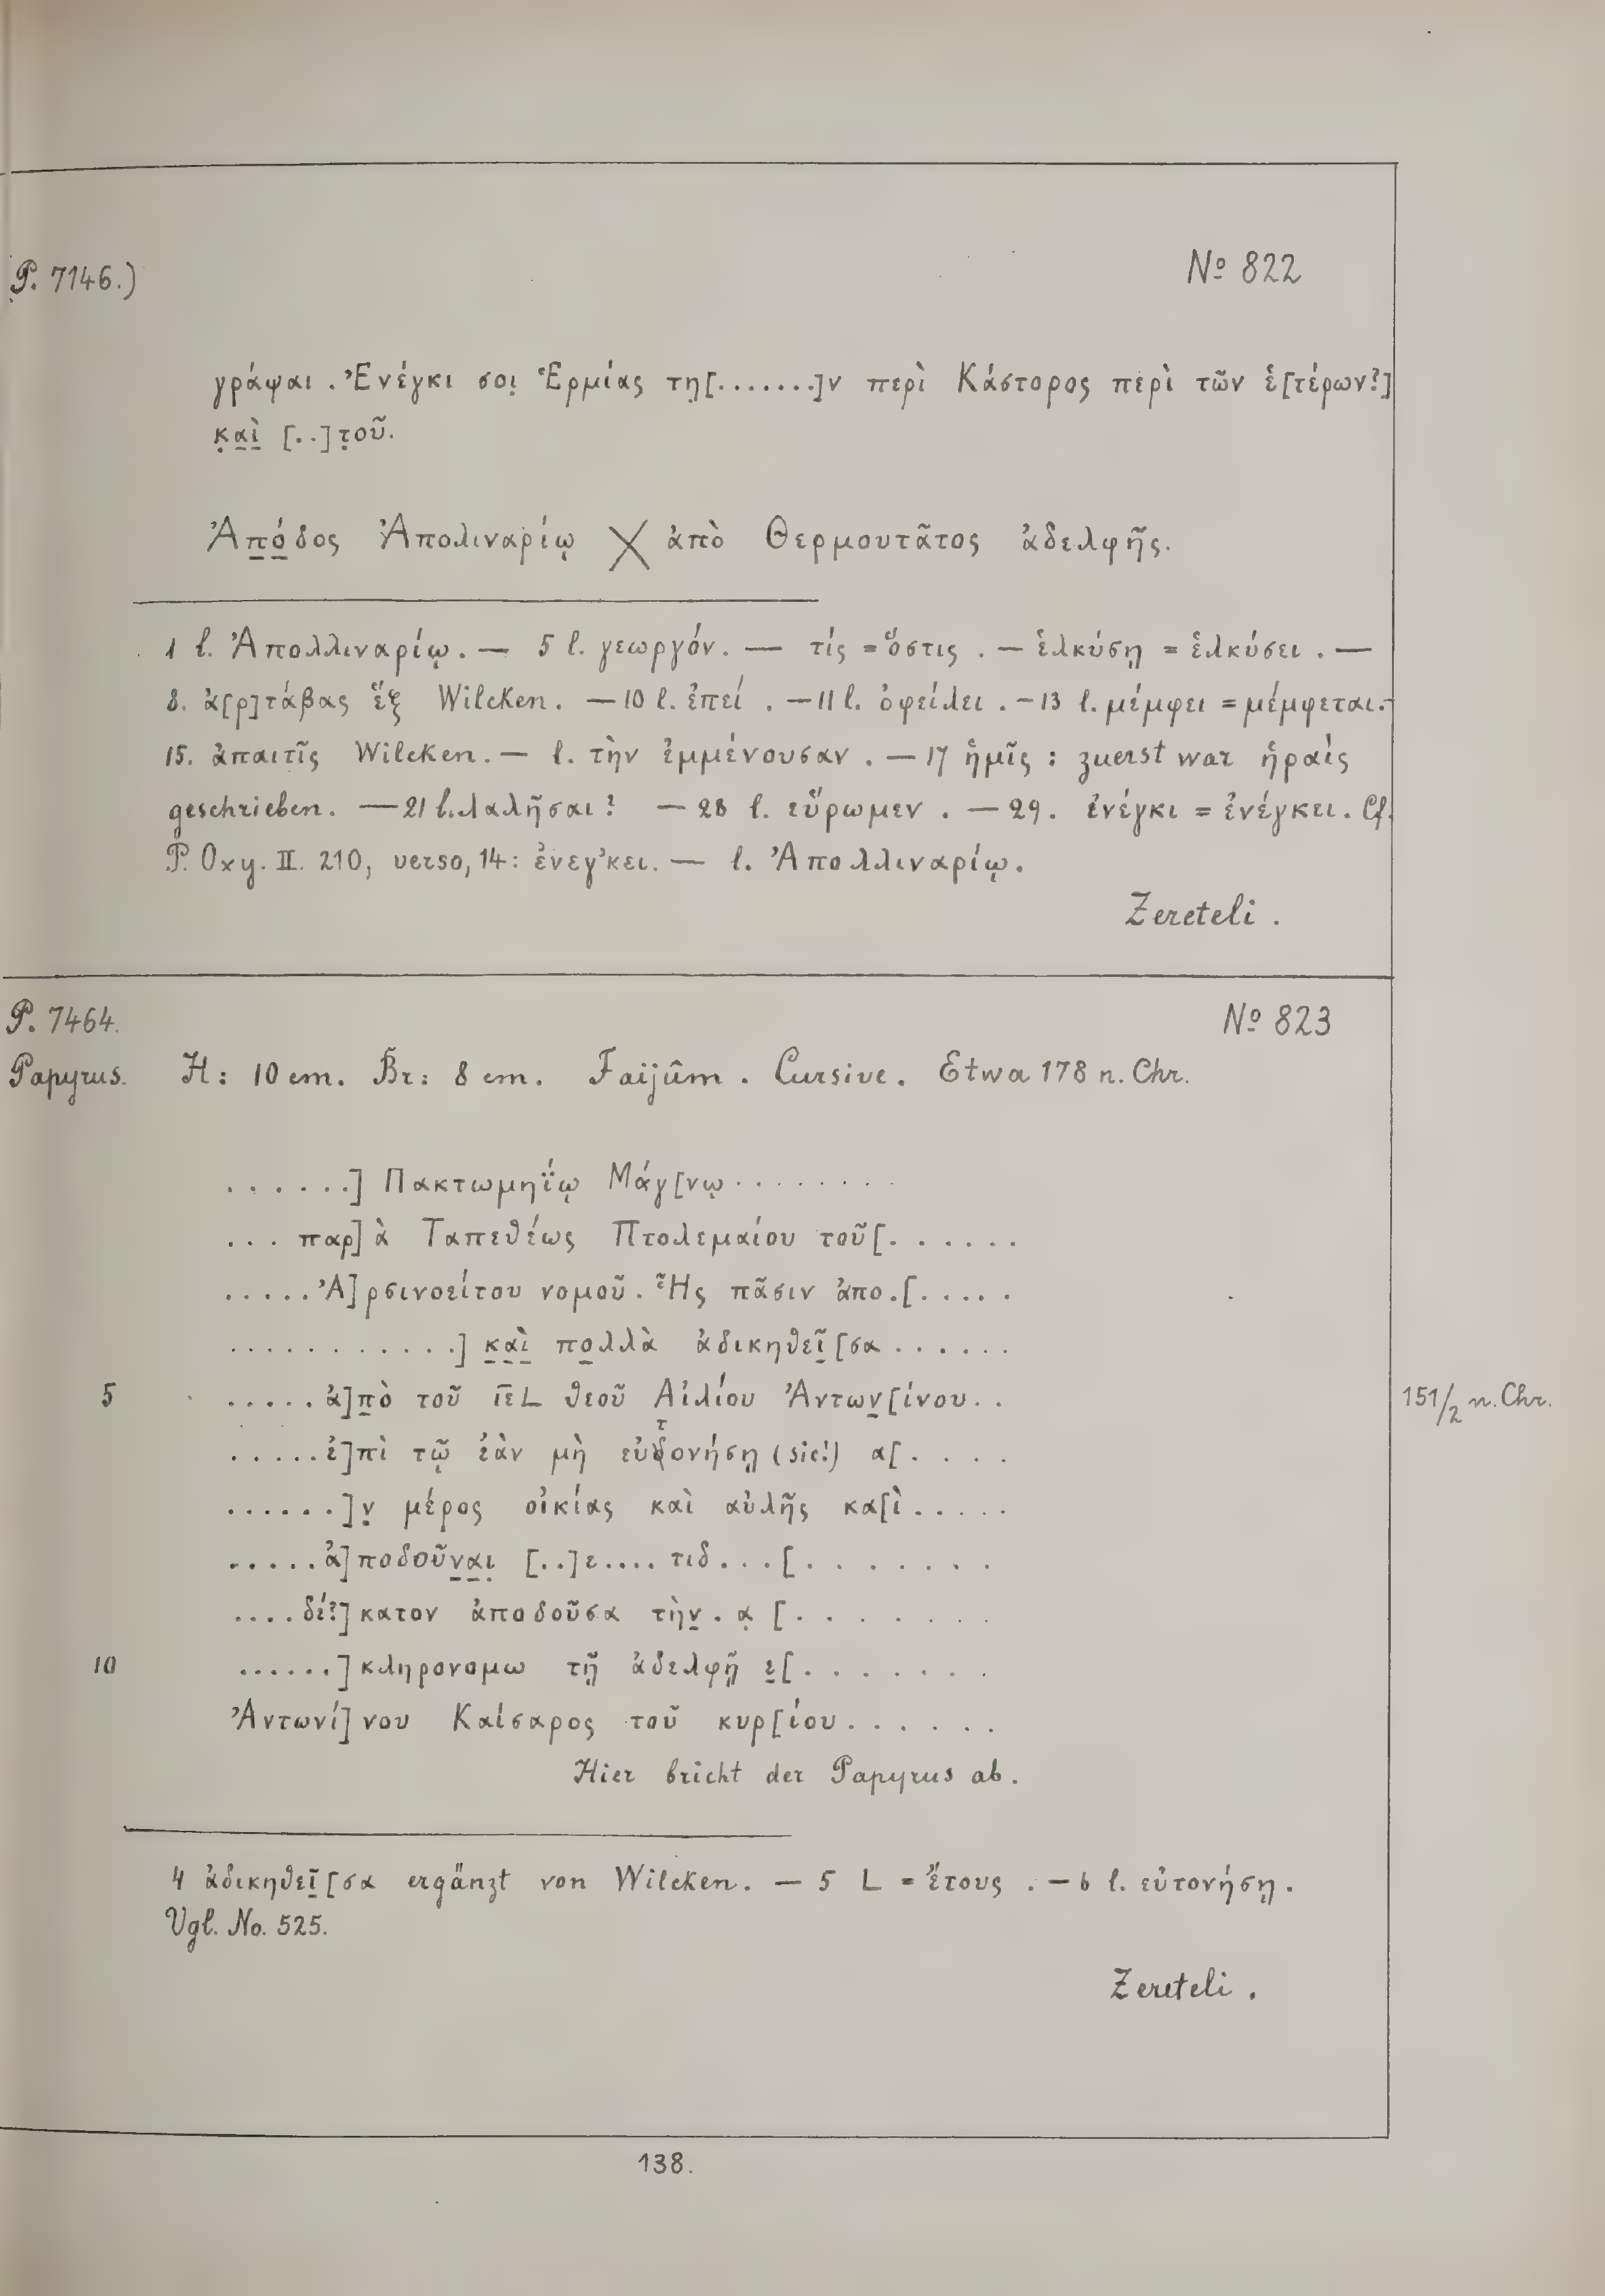 P. 7146.) Nº 822
γράψαι . Ἐνέγκι σοι̣ Ἑρμίας τη̣[.......]ν περὶ Κάστορος περὶ τῶν ἑ[τέρων?]
κ̣α̣ὶ̣ [..]τ̣οῦ.
Ἀπ̣ό̣δος Ἀπολιναρίῳ X ἀπὸ Θερμουτᾶτος ἀδελφῆς.
1 l. Ἀπολλιναρίῳ. — 5 l. γεωργόν. — τίς = ὅστις . — ἑλκύσῃ = ἑλκύσει . —
8. ἀ[ρ]τάβας ἕξ Wilcken. — 10 l. ἐπεί . — 11 l. ὀφείλει . — 13 l. μέμφει = μέμφεται. —
15. ἀπαιτῖς Wilcken. — l. τὴν ἐμμένουσαν . — 17 ἡμῖς : zuerst war ἡραίς
geschrieben. — 21 l. λαλῆσαι? — 28 l. εὕρωμεν . — 29. ἐνέγκι = ἐνέγκει. Cf.
P. Oxy. II. 210, verso, 14: ἐνεγ’κει. — l. Ἀπολλιναρίῳ.
Zereteli .
P. 7464. Nº 823
Papyrus. H: 10 cm. Br: 8 cm. Faijûm . Cursive . Etwa 178 n. Chr.
. . . . . .] Πακτωμηΐῳ Μάγ[νῳ . . . . . . . .
. . . παρ]ὰ Ταπεθέως Πτολεμαίου τοῦ[. . . . . .
. . . . . Ἀ]ρσινοείτου νομοῦ . Ἧς πᾶσιν ἀπο.[. . . . .
. . . . . . . . . . .] κ̣α̣ὶ̣ πο̣λλὰ ἀδικηθεῖ̣[σα . . . . . .
5 . . . . . ἀ]π̣ὸ τοῦ ι̅ε̅L θεοῦ Αἰλίου Ἀντων̣[ίνου . . 151/2 n. Chr.
. . . . . ἐ]πὶ τῷ ἐὰν μὴ εὐ⟦δ⟧`τ´ονήσῃ (sic!) α[. . . .
. . . . . .]ν̣ μέρος οἰκίας καὶ αὐλῆς κα[ὶ . . . . .
. . . . . ἀ]ποδοῦν̣α̣ι̣ [..]ε.... τιδ...[. . . . . . .
. . . . δέ?]κατον ἀποδοῦσα τὴν̣ . α̣ [. . . . . . .
10 . . . . . .]κληρονομω τῇ ἀδελφῇ ε̣[. . . . . . .
Ἀντωνί]νου Καίσαρος τοῦ κυρ[ίου . . . . . .
Hier bricht der Papyrus ab .
4 ἀδικηθεῖ̣[σα ergänzt von Wilcken. — 5 L = ἔτους . — 6 l. εὐτονήσῃ .
Vgl. No. 525.
Zereteli .
138.